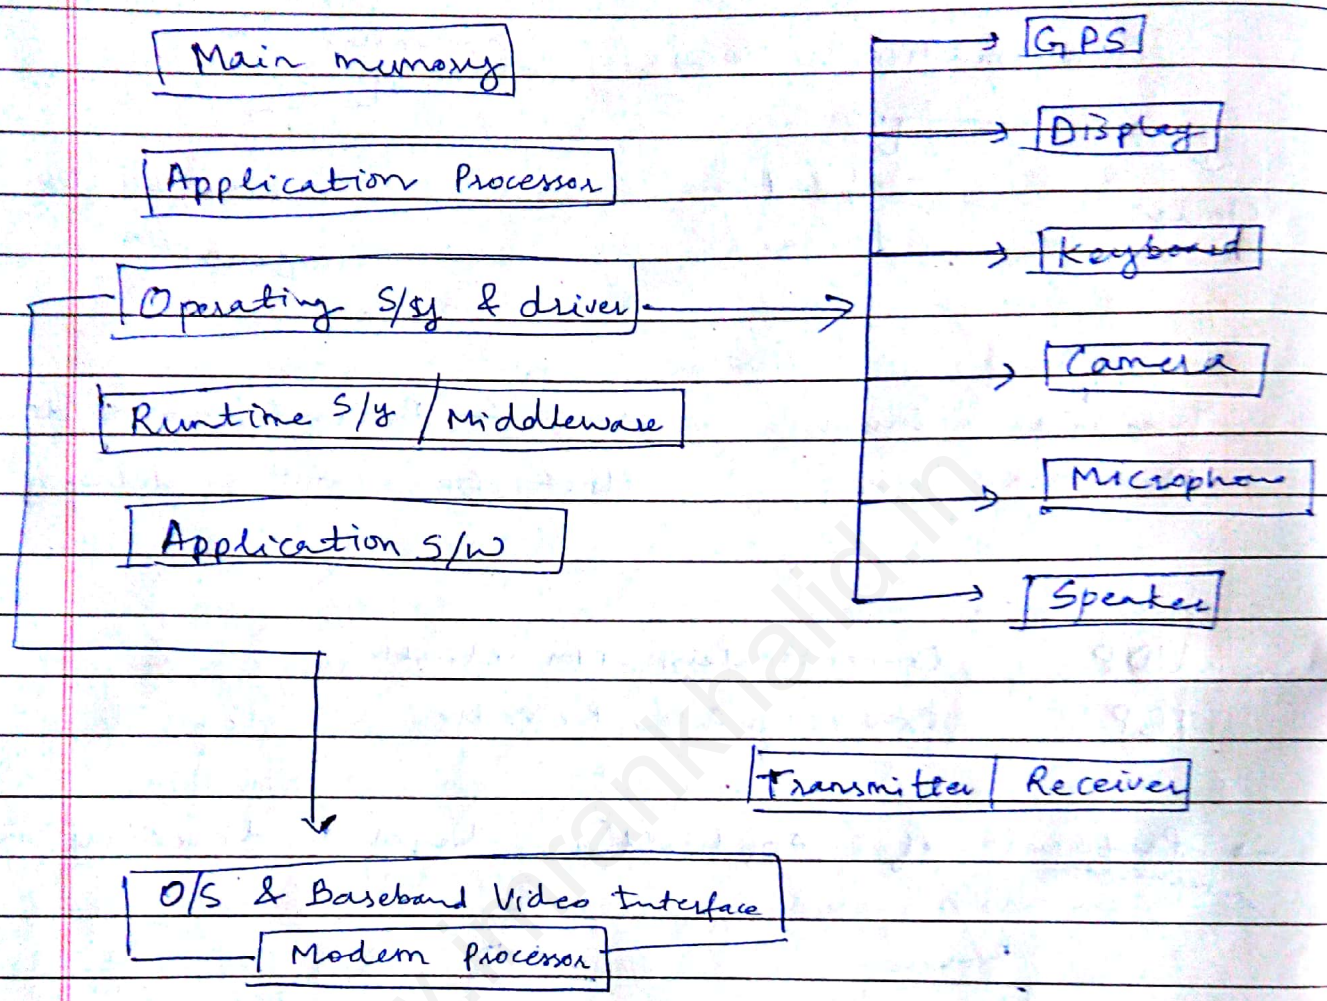 Main memory
Application Processor
Operating S/sy & driver
Runtime S/y / Middleware
Application S/W
GPS
Display
Keyboard
Camera
Microphone
Speaker
Transmitter / Receiver
O/S & Baseband Video Interface
Modem Processor
imrankhalid.in